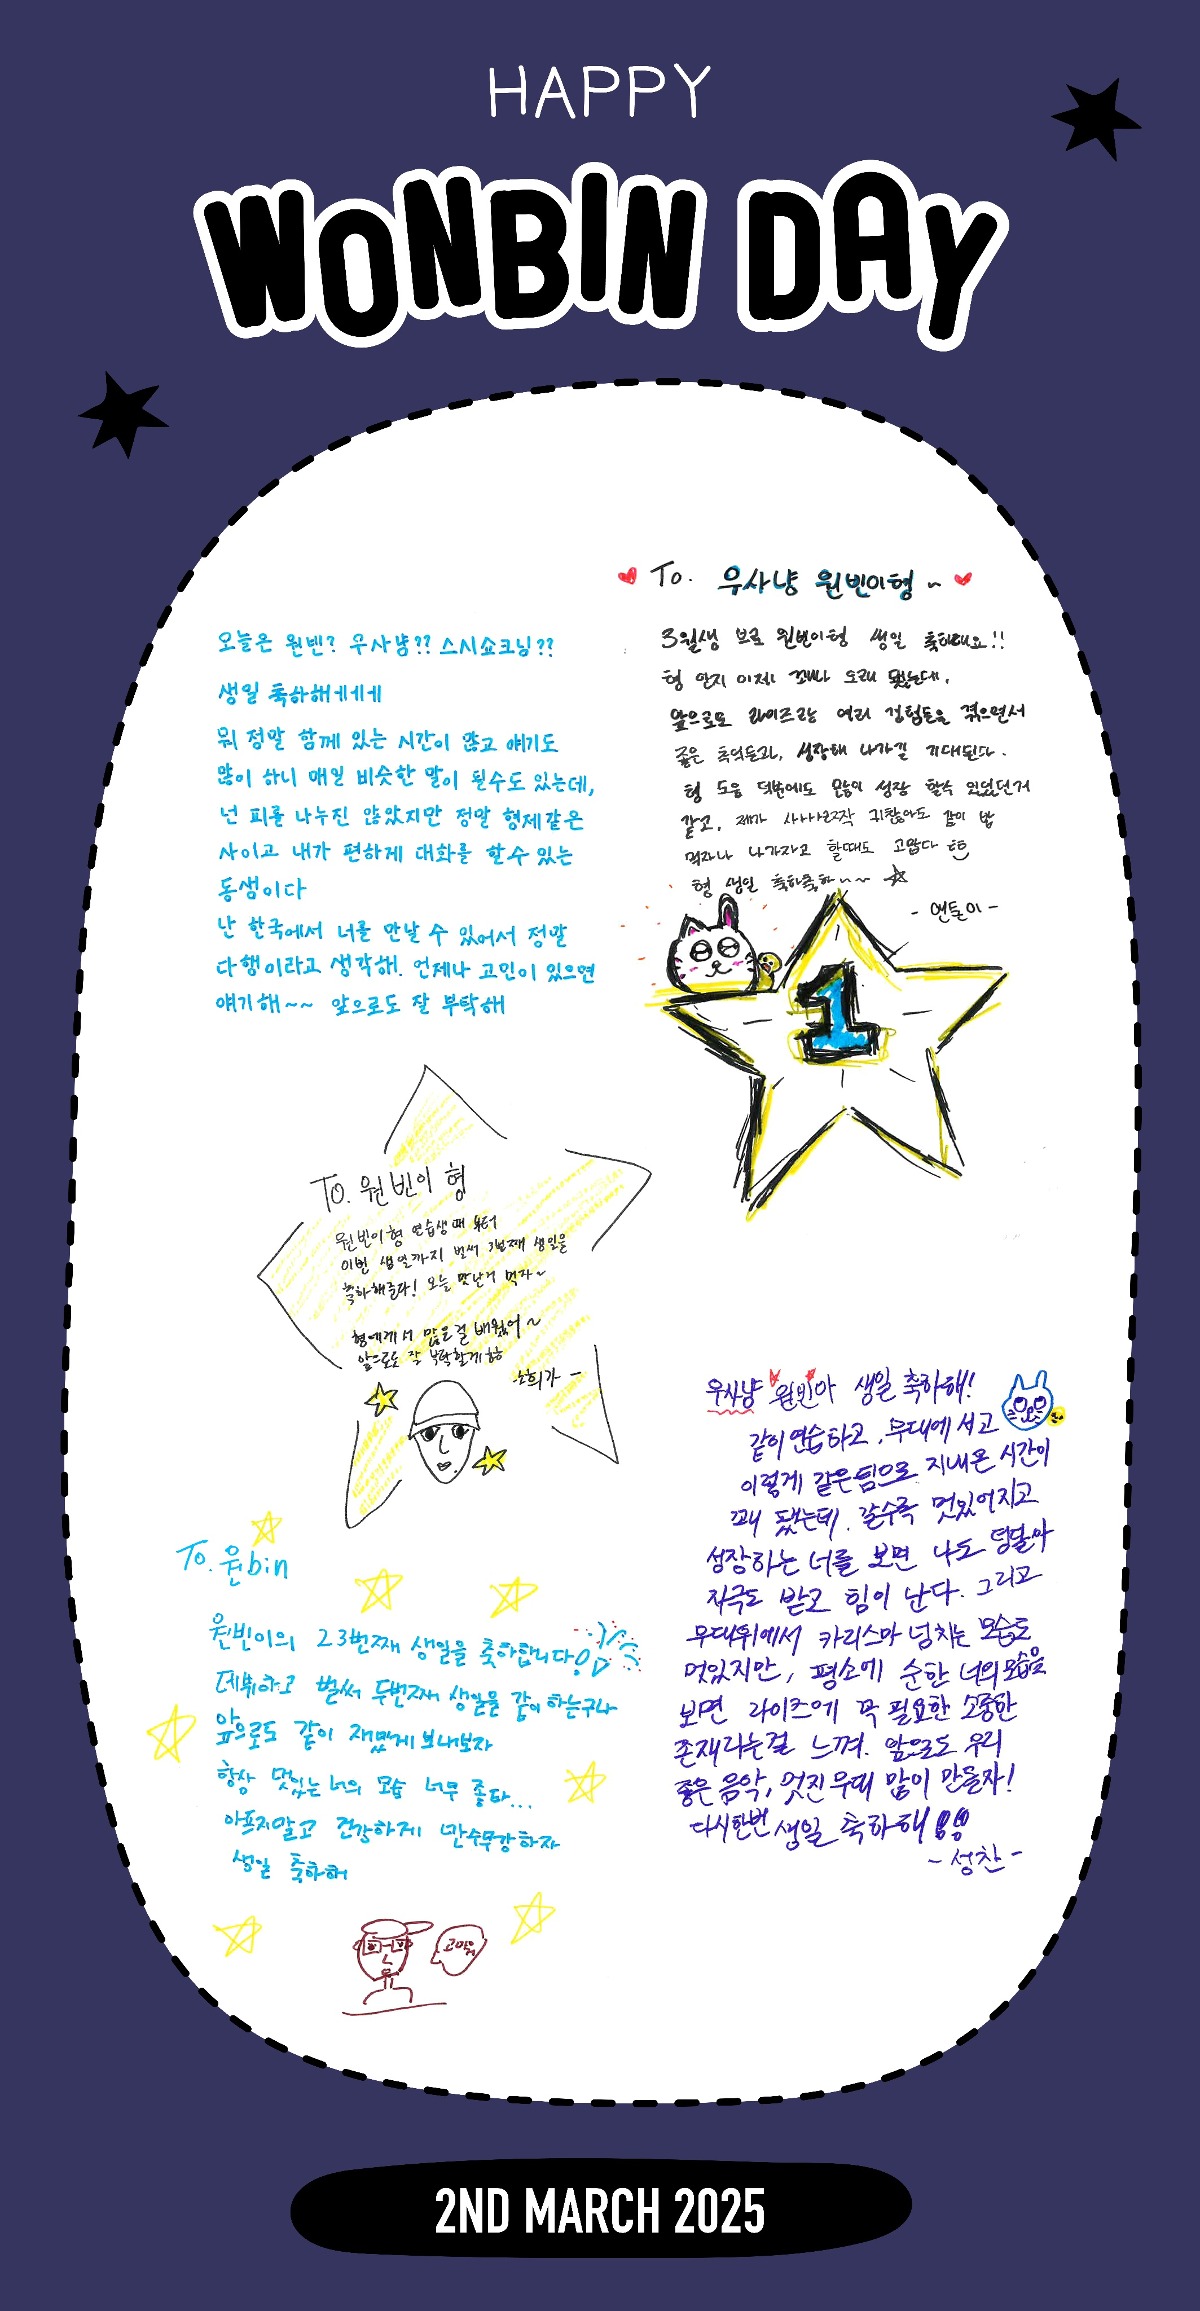 HAPPY
WONBIN DAY
오늘은 원빈? 우사냥?? 스시쇼크닝??
생일 축하해ㅔㅔㅔ
뭐 정말 함께 있는 시간이 많고 얘기도
많이 하니 매일 비슷한 말이 될수도 있는데,
넌 피를 나누진 않았지만 정말 형제같은
사이고 내가 편하게 대화를 할 수 있는
동생이다
난 한국에서 너를 만날 수 있어서 정말
다행이라고 생각해. 언제나 고민이 있으면
얘기해~~ 앞으로도 잘 부탁해
To. 우사냥 원빈이형~
3월생 브로 원빈이형 생일 축하해요!!
형 안지 이제 꽤나 오래 됐는데,
앞으로도 라이즈로 여러 경험들을 겪으면서
좋은 추억들과, 성장해 나가길 기대된다.
형 도움 덕분에도 많이 성장 할수 있었던거
같고, 제가 귀찮아도 같이 밥
먹자나 나가자고 할때도 고맙다
형 생일 축하축하~~~
- 앤톤이 -
1
To. 원빈이 형
원빈이형 연습생때 부터
이번 생일까지 벌써 3번째 생일을
축하해준다! 오늘 맛난거 먹자~
형에게서 많은걸 배웠어~
앞으로도 잘 부탁할게
- 소희가 -
To. 원bin
원빈이의 23번째 생일을 축하합니다!
데뷔하고 벌써 두번째 생일을 같이 하는구나
앞으로도 같이 재밌게 보내보자
항상 멋있는 너의 모습 너무 좋다...
아프지말고 건강하게 만수무강하자
생일 축하해
고마워
우사냥 원빈아 생일 축하해!
같이 연습하고, 무대에 서고
이렇게 같은 팀으로 지내온 시간이
꽤 됐는데, 갈수록 멋있어지고
성장하는 너를 보면 나도 덩달아
자극도 받고 힘이 난다. 그리고
무대위에서 카리스마 넘치는 모습도
멋있지만, 평소에 순한 너의 모습을
보면 라이즈에 꼭 필요한 소중한
존재라는걸 느껴. 앞으로도 우리
좋은 음악, 멋진 무대 많이 만들자!
다시한번 생일 축하해!!
- 성찬 -
2ND MARCH 2025